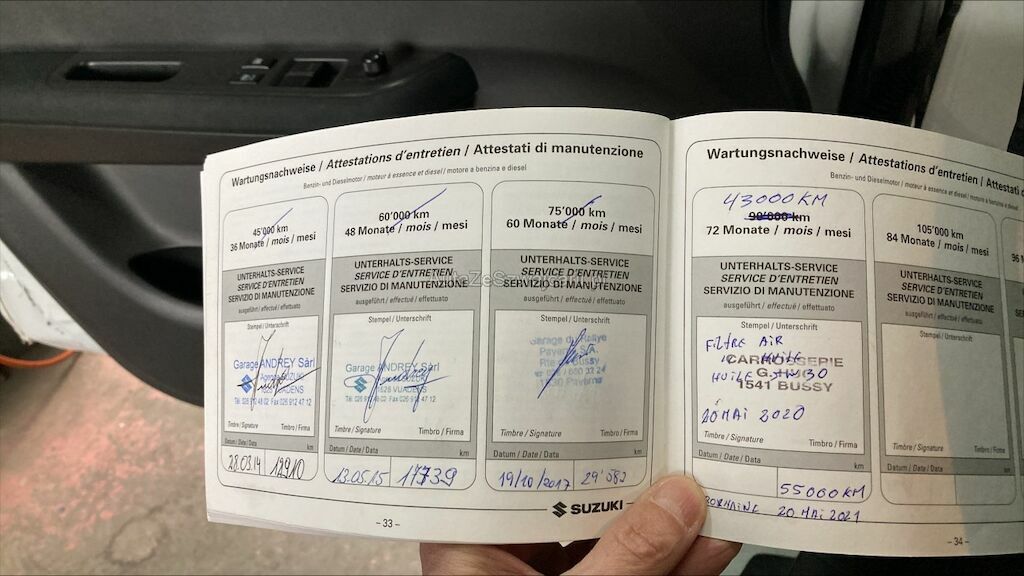 Wartungsnachweise / Attestations d'entretien / Attestati di manutenzione
Benzin- und Dieselmotor / moteur à essence et diesel / motore a benzina e diesel
45'000 km
36 Monate / mois / mesi
UNTERHALTS-SERVICE
SERVICE D'ENTRETIEN
SERVIZIO DI MANUTENZIONE
ausgeführt / effectué / effettuato
Stempel / Unterschrift
Garage ANDREY Sàrl
Tél. 026 912 48 02 Fax 026 912 47 12
Timbre / Signature Timbro / Firma
Datum / Date / Data km
28.03.14 12910
60'000 km
48 Monate / mois / mesi
UNTERHALTS-SERVICE
SERVICE D'ENTRETIEN
SERVIZIO DI MANUTENZIONE
ausgeführt / effectué / effettuato
Stempel / Unterschrift
Garage ANDREY Sàrl
1628 VUADENS
Tél. 026 912 48 02 Fax 026 912 47 12
Timbre / Signature Timbro / Firma
Datum / Date / Data km
13.05.15 17739
75'000 km
60 Monate / mois / mesi
UNTERHALTS-SERVICE
SERVICE D'ENTRETIEN
SERVIZIO DI MANUTENZIONE
ausgeführt / effectué / effettuato
Stempel / Unterschrift
Garage du Rallye
Payerne S.A.
1530 Payerne
Timbre / Signature Timbro / Firma
Datum / Date / Data km
19/10/2017 29'582
SUZUKI
- 33 -
Wartungsnachweise / Attestations d'entretien / Attestati
Benzin- und Dieselmotor / moteur à essence et diesel / motore a benzina e
43000 KM
90'000 km
72 Monate / mois / mesi
UNTERHALTS-SERVICE
SERVICE D'ENTRETIEN
SERVIZIO DI MANUTENZIONE
ausgeführt / effectué / effettuato
Stempel / Unterschrift
FILTRE AIR
HUILE
CARROSSERIE
HUILE 5W30
1541 BUSSY
20 MAI 2020
Timbre / Signature Timbro / Firma
Datum / Date / Data km
55000 KM
20 MAI 2021
105'000 km
84 Monate / mois / mesi
UNTERHALTS-SERVICE
SERVICE D'ENTRETIEN
SERVIZIO DI MANUTENZIONE
ausgeführt / effectué / effettuato
Stempel / Unterschrift
Timbre / Signature Timbro / Firma
Datum / Date / Data km
96
- 34 -